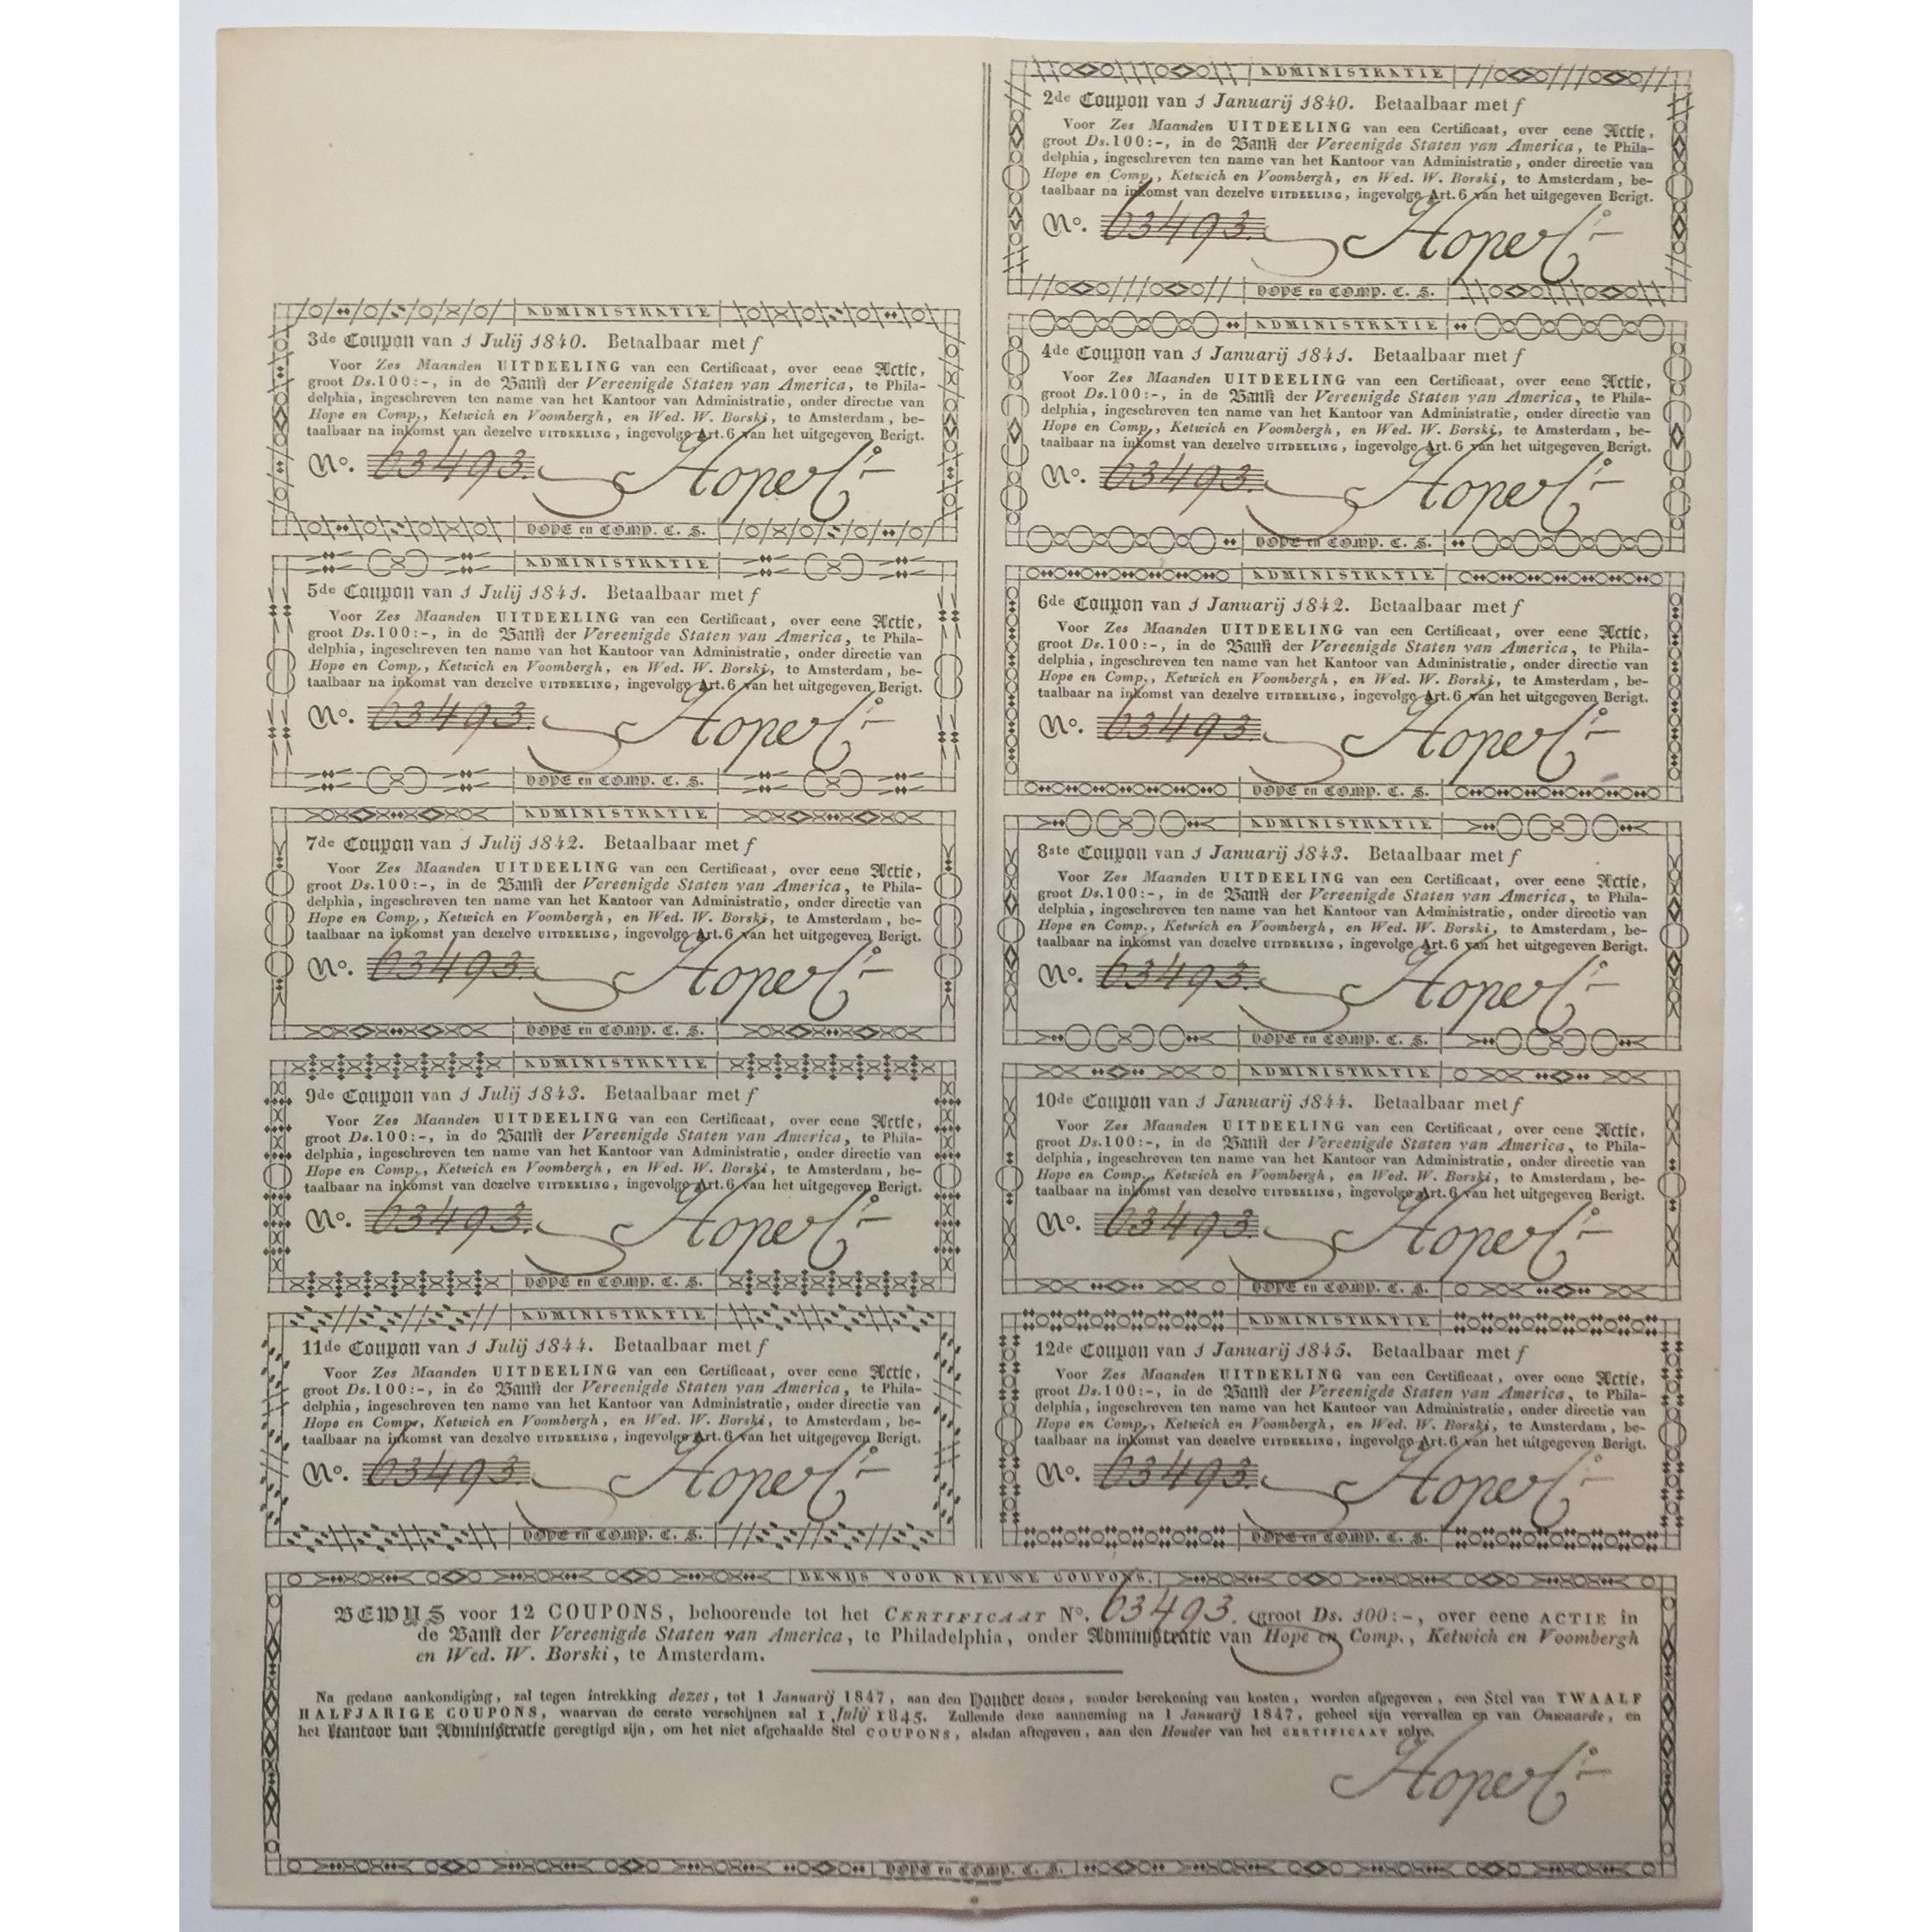 ADMINISTRATIE
2de Coupon van 1 Januarij 1840. Betaalbaar met f
Voor Zes Maanden UITDEELING van een Certificaat, over eene Actie,
groot Ds. 100:-, in de Bank der Vereenigde Staten van America, te Phila-
delphia, ingeschreven ten name van het Kantoor van Administratie, onder directie van
Hope en Comp., Ketwich en Voombergh, en Wed. W. Borski, te Amsterdam, be-
taalbaar na inkomst van dezelve UITDEELING, ingevolge Art. 6 van het uitgegeven Berigt.
No. 63493. Hope & Co
HOPE en COMP. C. S.
ADMINISTRATIE
3de Coupon van 1 Julij 1840. Betaalbaar met f
Voor Zes Maanden UITDEELING van een Certificaat, over eene Actie,
groot Ds. 100:-, in de Bank der Vereenigde Staten van America, te Phila-
delphia, ingeschreven ten name van het Kantoor van Administratie, onder directie van
Hope en Comp., Ketwich en Voombergh, en Wed. W. Borski, te Amsterdam, be-
taalbaar na inkomst van dezelve UITDEELING, ingevolge Art. 6 van het uitgegeven Berigt.
No. 63493. Hope & Co
HOPE en COMP. C. S.
ADMINISTRATIE
4de Coupon van 1 Januarij 1841. Betaalbaar met f
Voor Zes Maanden UITDEELING van een Certificaat, over eene Actie,
groot Ds. 100:-, in de Bank der Vereenigde Staten van America, te Phila-
delphia, ingeschreven ten name van het Kantoor van Administratie, onder directie van
Hope en Comp., Ketwich en Voombergh, en Wed. W. Borski, te Amsterdam, be-
taalbaar na inkomst van dezelve UITDEELING, ingevolge Art. 6 van het uitgegeven Berigt.
No. 63493. Hope & Co
HOPE en COMP. C. S.
ADMINISTRATIE
5de Coupon van 1 Julij 1841. Betaalbaar met f
Voor Zes Maanden UITDEELING van een Certificaat, over eene Actie,
groot Ds. 100:-, in de Bank der Vereenigde Staten van America, te Phila-
delphia, ingeschreven ten name van het Kantoor van Administratie, onder directie van
Hope en Comp., Ketwich en Voombergh, en Wed. W. Borski, te Amsterdam, be-
taalbaar na inkomst van dezelve UITDEELING, ingevolge Art. 6 van het uitgegeven Berigt.
No. 63493. Hope & Co
HOPE en COMP. C. S.
ADMINISTRATIE
6de Coupon van 1 Januarij 1842. Betaalbaar met f
Voor Zes Maanden UITDEELING van een Certificaat, over eene Actie,
groot Ds. 100:-, in de Bank der Vereenigde Staten van America, te Phila-
delphia, ingeschreven ten name van het Kantoor van Administratie, onder directie van
Hope en Comp., Ketwich en Voombergh, en Wed. W. Borski, te Amsterdam, be-
taalbaar na inkomst van dezelve UITDEELING, ingevolge Art. 6 van het uitgegeven Berigt.
No. 63493. Hope & Co
HOPE en COMP. C. S.
ADMINISTRATIE
7de Coupon van 1 Julij 1842. Betaalbaar met f
Voor Zes Maanden UITDEELING van een Certificaat, over eene Actie,
groot Ds. 100:-, in de Bank der Vereenigde Staten van America, te Phila-
delphia, ingeschreven ten name van het Kantoor van Administratie, onder directie van
Hope en Comp., Ketwich en Voombergh, en Wed. W. Borski, te Amsterdam, be-
taalbaar na inkomst van dezelve UITDEELING, ingevolge Art. 6 van het uitgegeven Berigt.
No. 63493. Hope & Co
HOPE en COMP. C. S.
ADMINISTRATIE
8ste Coupon van 1 Januarij 1843. Betaalbaar met f
Voor Zes Maanden UITDEELING van een Certificaat, over eene Actie,
groot Ds. 100:-, in de Bank der Vereenigde Staten van America, te Phila-
delphia, ingeschreven ten name van het Kantoor van Administratie, onder directie van
Hope en Comp., Ketwich en Voombergh, en Wed. W. Borski, te Amsterdam, be-
taalbaar na inkomst van dezelve UITDEELING, ingevolge Art. 6 van het uitgegeven Berigt.
No. 63493. Hope & Co
HOPE en COMP. C. S.
ADMINISTRATIE
9de Coupon van 1 Julij 1843. Betaalbaar met f
Voor Zes Maanden UITDEELING van een Certificaat, over eene Actie,
groot Ds. 100:-, in de Bank der Vereenigde Staten van America, te Phila-
delphia, ingeschreven ten name van het Kantoor van Administratie, onder directie van
Hope en Comp., Ketwich en Voombergh, en Wed. W. Borski, te Amsterdam, be-
taalbaar na inkomst van dezelve UITDEELING, ingevolge Art. 6 van het uitgegeven Berigt.
No. 63493. Hope & Co
HOPE en COMP. C. S.
ADMINISTRATIE
10de Coupon van 1 Januarij 1844. Betaalbaar met f
Voor Zes Maanden UITDEELING van een Certificaat, over eene Actie,
groot Ds. 100:-, in de Bank der Vereenigde Staten van America, te Phila-
delphia, ingeschreven ten name van het Kantoor van Administratie, onder directie van
Hope en Comp., Ketwich en Voombergh, en Wed. W. Borski, te Amsterdam, be-
taalbaar na inkomst van dezelve UITDEELING, ingevolge Art. 6 van het uitgegeven Berigt.
No. 63493. Hope & Co
HOPE en COMP. C. S.
ADMINISTRATIE
11de Coupon van 1 Julij 1844. Betaalbaar met f
Voor Zes Maanden UITDEELING van een Certificaat, over eene Actie,
groot Ds. 100:-, in de Bank der Vereenigde Staten van America, te Phila-
delphia, ingeschreven ten name van het Kantoor van Administratie, onder directie van
Hope en Comp., Ketwich en Voombergh, en Wed. W. Borski, te Amsterdam, be-
taalbaar na inkomst van dezelve UITDEELING, ingevolge Art. 6 van het uitgegeven Berigt.
No. 63493. Hope & Co
HOPE en COMP. C. S.
ADMINISTRATIE
12de Coupon van 1 Januarij 1845. Betaalbaar met f
Voor Zes Maanden UITDEELING van een Certificaat, over eene Actie,
groot Ds. 100:-, in de Bank der Vereenigde Staten van America, te Phila-
delphia, ingeschreven ten name van het Kantoor van Administratie, onder directie van
Hope en Comp., Ketwich en Voombergh, en Wed. W. Borski, te Amsterdam, be-
taalbaar na inkomst van dezelve UITDEELING, ingevolge Art. 6 van het uitgegeven Berigt.
No. 63493. Hope & Co
HOPE en COMP. C. S.
BEWIJS VOOR NIEUWE COUPONS.
BEWIJS voor 12 COUPONS, behoorende tot het CERTIFICAAT No. 63493. groot Ds. 100:-, over eene ACTIE in
de Bank der Vereenigde Staten van America, te Philadelphia, onder Administratie van Hope en Comp., Ketwich en Voombergh
en Wed. W. Borski, te Amsterdam.
Na gedane aankondiging, zal tegen intrekking dezes, tot 1 Januarij 1847, aan den Houder dezes, zonder berekening van kosten, worden afgegeven, een Stel van TWAALF
HALFJARIGE COUPONS, waarvan de eerste verschijnen zal 1 Julij 1845. Zullende deze aanneming na 1 Januarij 1847, geheel zijn vervallen en van Onwaarde, en
het Kantoor van Administratie geregtigd zijn, om het niet afgehaalde Stel COUPONS, alsdan aftegeven, aan den Houder van het CERTIFICAAT zelve.
Hope & Co
HOPE en COMP. C. S.